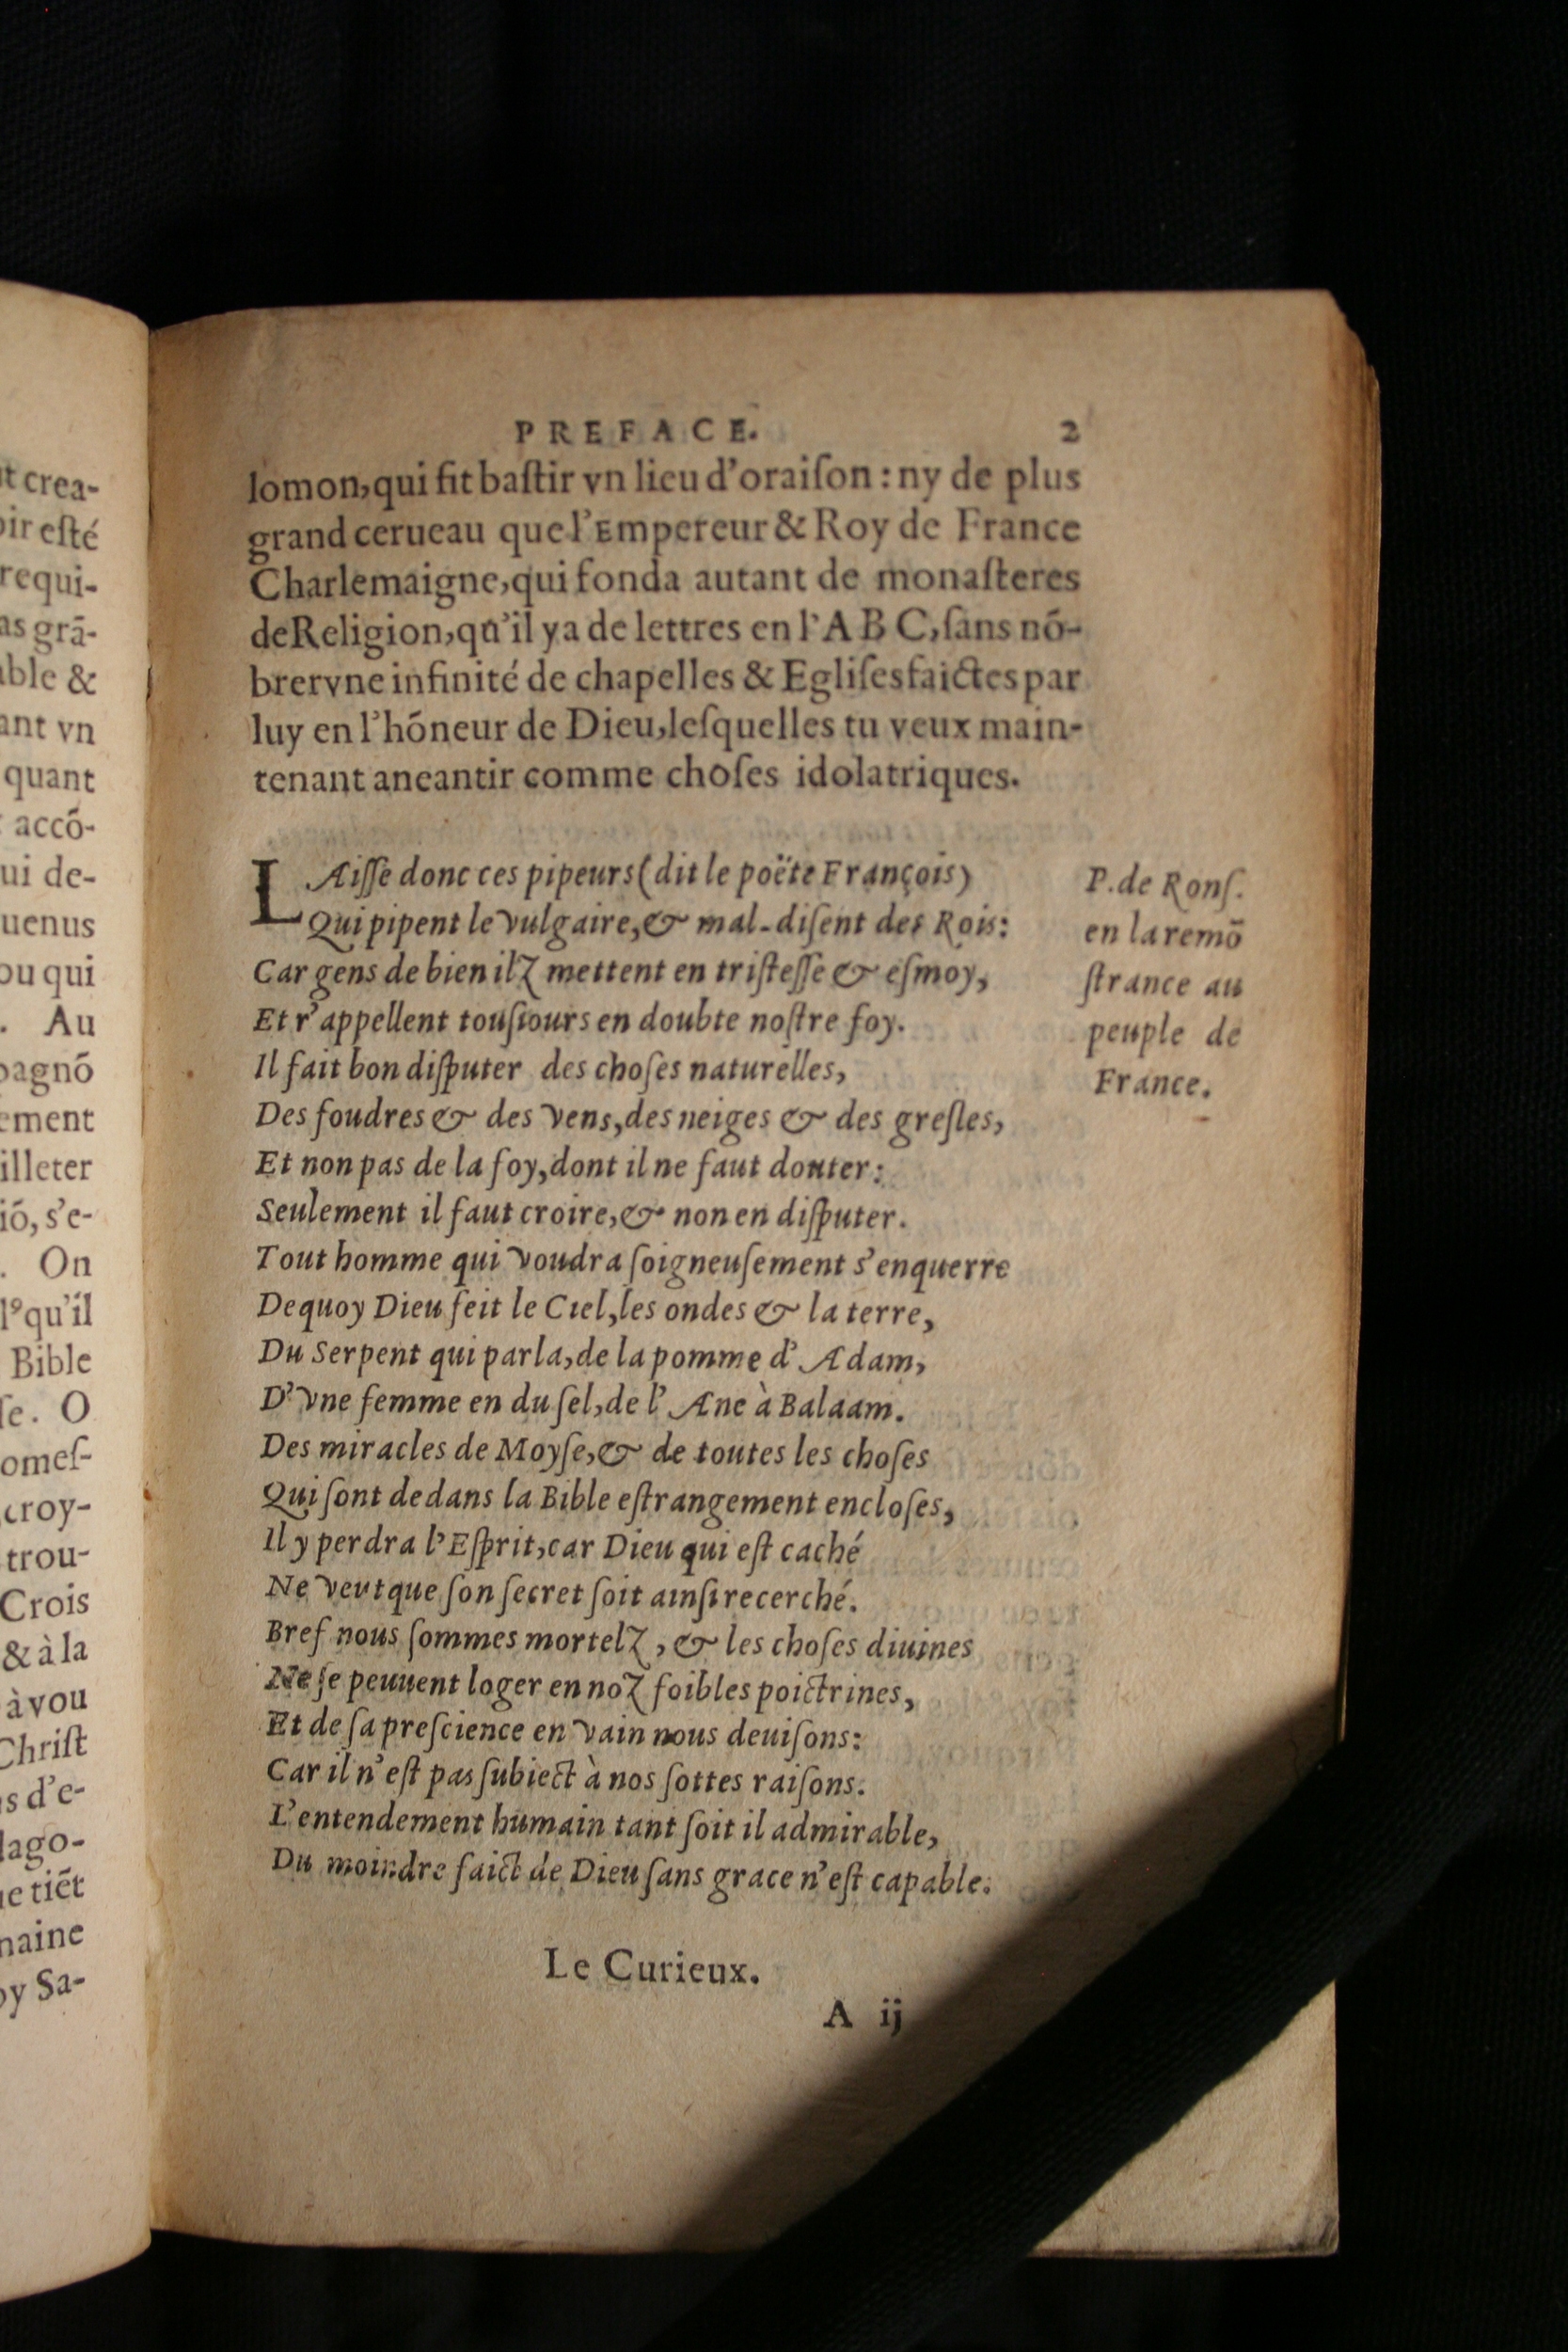 t crea-
oir esté
requi-
as grā-
able &
ant vn
quant
accō-
ui de-
uenus
ou qui
. Au
pagnō
ement
illeter
iō, s'e-
. On
lꝰqu'il
Bible
ſe. O
omeſ-
croy-
trou-
Crois
& à la
à vou
Chriſt
s d'e-
lago-
ue tiēt
maine
oy Sa-
PREFACE. 2
lomon, qui fit baſtir vn lieu d'oraiſon : ny de plus
grand cerueau que l'Empereur & Roy de France
Charlemaigne, qui fonda autant de monaſteres
de Religion, qu'il y a de lettres en l'A B C, ſans nō-
brer vne infinité de chapelles & Egliſes faictes par
luy en l'hōneur de Dieu, leſquelles tu veux main-
tenant aneantir comme choſes idolatriques.
LAiſſe donc ces pipeurs (dit le poëte François)
Qui pipent le vulgaire, & mal-diſent des Rois:
Car gens de bien ilz mettent en triſteſſe & eſmoy,
Et r'appellent touſiours en doubte noſtre foy.
Il fait bon diſputer des choſes naturelles,
Des foudres & des vens, des neiges & des greſles,
Et non pas de la foy, dont il ne faut douter:
Seulement il faut croire, & non en diſputer.
Tout homme qui voudra ſoigneuſement s'enquerre
Dequoy Dieu feit le Ciel, les ondes & la terre,
Du Serpent qui parla, de la pomme d'Adam,
D'vne femme en du ſel, de l'Ane à Balaam.
Des miracles de Moyſe, & de toutes les choſes
Qui ſont dedans la Bible eſtrangement encloſes,
Il y perdra l'Eſprit, car Dieu qui eſt caché
Ne veut que ſon ſecret ſoit ainſi recerché.
Bref nous ſommes mortelz, & les choſes diuines
Ne ſe peuuent loger en noz foibles poictrines,
Et de ſa preſcience en vain nous deuiſons:
Car il n'eſt pas ſubiect à nos ſottes raiſons.
L'entendement humain tant ſoit il admirable,
Du moindre faict de Dieu ſans grace n'eſt capable.
P. de Ronſ.
en la remō
ſtrance au
peuple de
France.
Le Curieux.
A ij